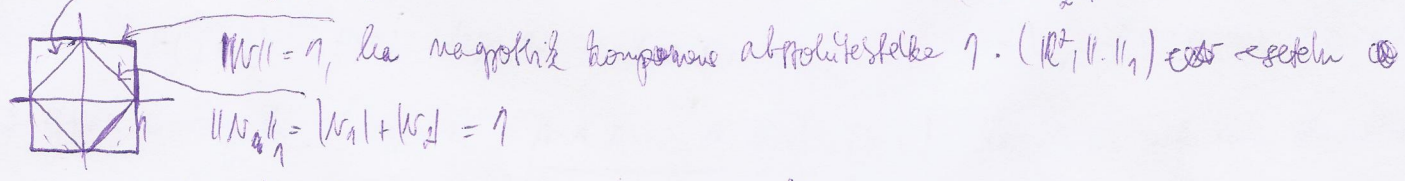 ||v|| = 1, ha nagyobbik komponens abszolútértéke 1. (ℝ², ||.||₁) esetén
||v||₁ = |v₁| + |v₂| = 1
1